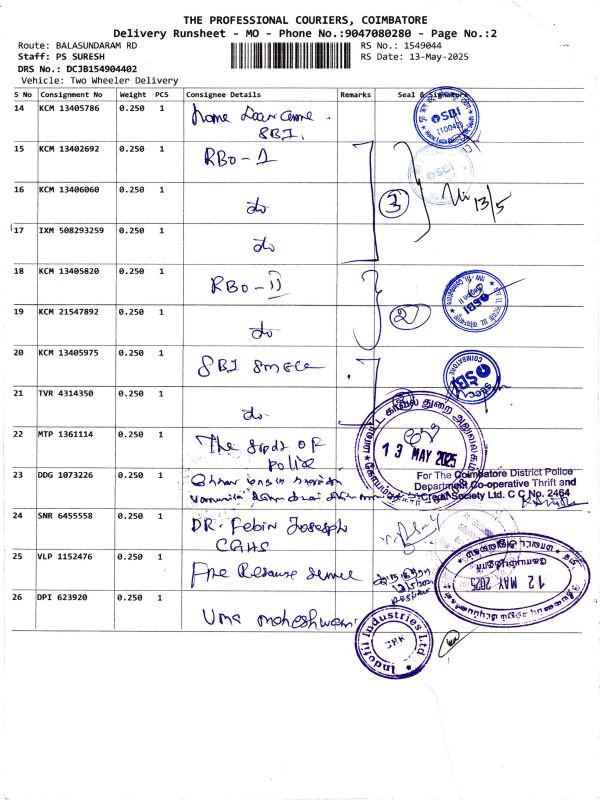 THE PROFESSIONAL COURIERS, COIMBATORE
Delivery Runsheet - MO - Phone No.:9047080280 - Page No.:2
Route: BALASUNDARAM RD
RS No.: 1549044
Staff: PS SURESH
RS Date: 13-May-2025
DRS No.: DCJB154904402
Vehicle: Two Wheeler Delivery
S No Consignment No Weight PCS Consignee Details Remarks Seal & Signature
14 KCM 13405786 0.250 1 Home Loan Centre
SBI.
15 KCM 13402692 0.250 1 RBO - I
16 KCM 13406060 0.250 1 do
3
13/5
17 IXM 508293259 0.250 1 do
18 KCM 13405820 0.250 1 RBO - II
19 KCM 21547892 0.250 1 do
2
20 KCM 13405975 0.250 1 SBI SMECC
SBI
21 TVR 4314350 0.250 1 do
22 MTP 1361114 0.250 1 The Supdt OF
Police
13 MAY 2025
23 DDG 1073226 0.250 1
For The Coimbatore District Police
Department Co-operative Thrift and
Credit Society Ltd. C C No. 2464
24 SNR 6455558 0.250 1 DR. Febin Joseph
CGHS
25 VLP 1152476 0.250 1 Fire Rescue Service
12 MAY 2025
26 DPI 623920 0.250 1 Uma maheshwari
Indofil Industries Ltd